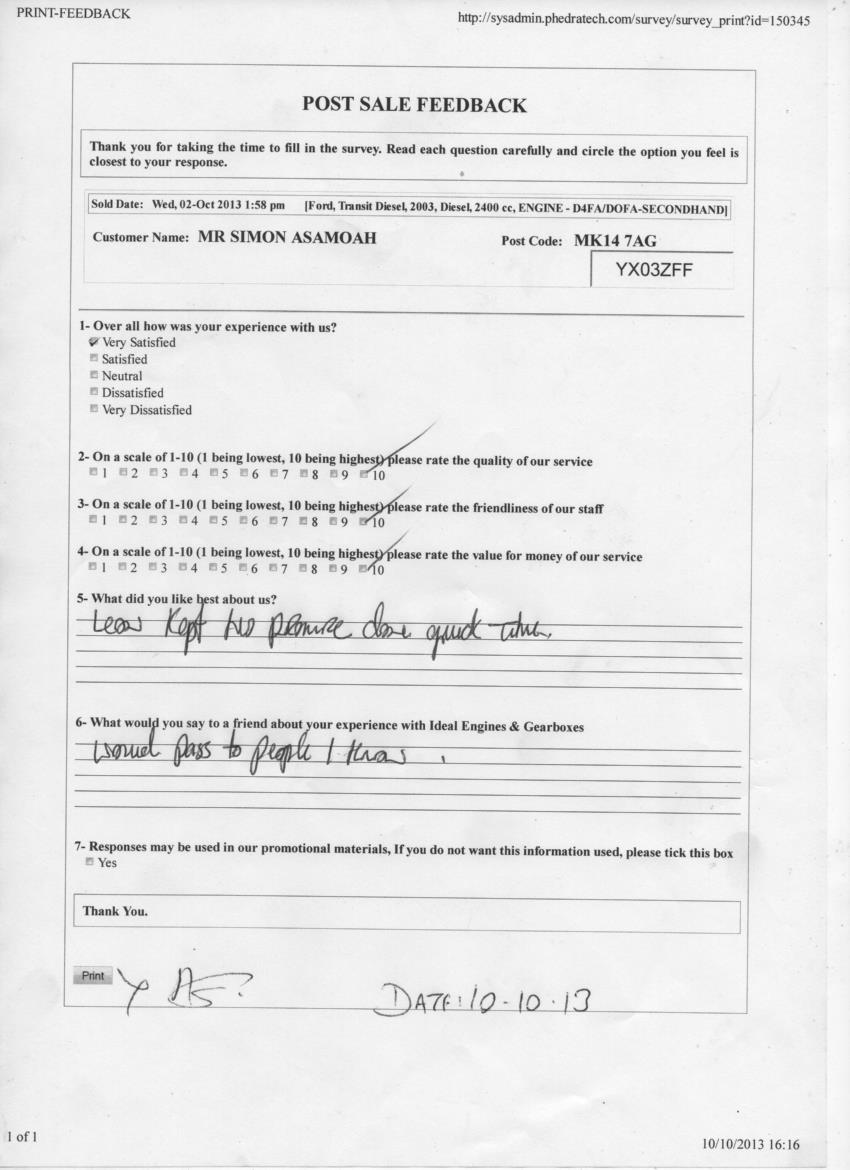 PRINT-FEEDBACK
http://sysadmin.phedratech.com/survey/survey_print?id=150345
POST SALE FEEDBACK
Thank you for taking the time to fill in the survey. Read each question carefully and circle the option you feel is
closest to your response.
Sold Date: Wed, 02-Oct 2013 1:58 pm [Ford, Transit Diesel, 2003, Diesel, 2400 cc, ENGINE - D4FA/DOFA-SECONDHAND]
Customer Name: MR SIMON ASAMOAH Post Code: MK14 7AG
YX03ZFF
1- Over all how was your experience with us?
Very Satisfied
Satisfied
Neutral
Dissatisfied
Very Dissatisfied
2- On a scale of 1-10 (1 being lowest, 10 being highest) please rate the quality of our service
1 2 3 4 5 6 7 8 9 10
3- On a scale of 1-10 (1 being lowest, 10 being highest) please rate the friendliness of our staff
1 2 3 4 5 6 7 8 9 10
4- On a scale of 1-10 (1 being lowest, 10 being highest) please rate the value for money of our service
1 2 3 4 5 6 7 8 9 10
5- What did you like best about us?
Kept his promise done quick time.
6- What would you say to a friend about your experience with Ideal Engines & Gearboxes
would pass to people I know.
7- Responses may be used in our promotional materials, If you do not want this information used, please tick this box
Yes
Thank You.
Print
DATE: 10-10-13
1 of 1
10/10/2013 16:16